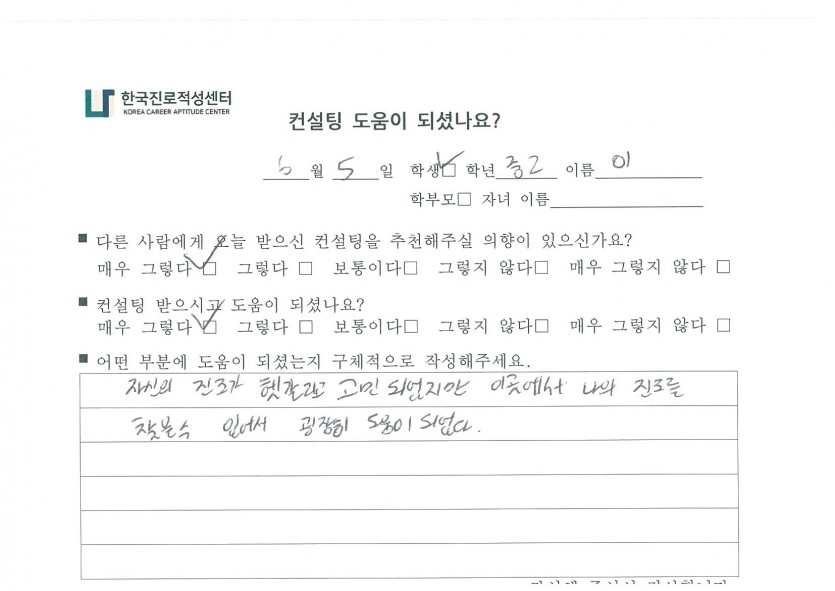 한국진로적성센터
KOREA CAREER APTITUDE CENTER
컨설팅 도움이 되셨나요?
6월 5일 학생☑ 학년 중2 이름 이
학부모□ 자녀 이름
■ 다른 사람에게 오늘 받으신 컨설팅을 추천해주실 의향이 있으신가요?
매우 그렇다 ☑ 그렇다 □ 보통이다□ 그렇지 않다□ 매우 그렇지 않다 □
■ 컨설팅 받으시고 도움이 되셨나요?
매우 그렇다 ☑ 그렇다 □ 보통이다□ 그렇지 않다□ 매우 그렇지 않다 □
■ 어떤 부분에 도움이 되셨는지 구체적으로 작성해주세요.
자신의 진로가 헷갈리고 고민 되었지만 이곳에서 나의 진로를
찾을수 있어서 굉장히 도움이 되었다.